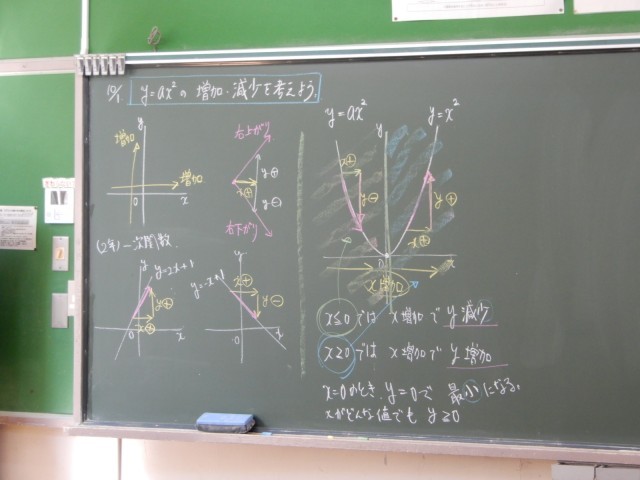 10/1 y=ax²の増加・減少を考えよう。
増加
増加
0
x
右上がり
y⊕
x⊕
y⊖
右下がり
(2年)一次関数
y
y=2x+1
y⊕
x⊕
0
x
y
y=-x+1
x⊕
y⊖
0
x
y=ax²
y
y=x²
x⊕
y⊖
y⊕
x⊕
0
x
x増加
x≦0では x増加で y減少
x≧0では x増加で y増加
x=0のとき、y=0で 最小になる。
xがどんな値でも y≧0